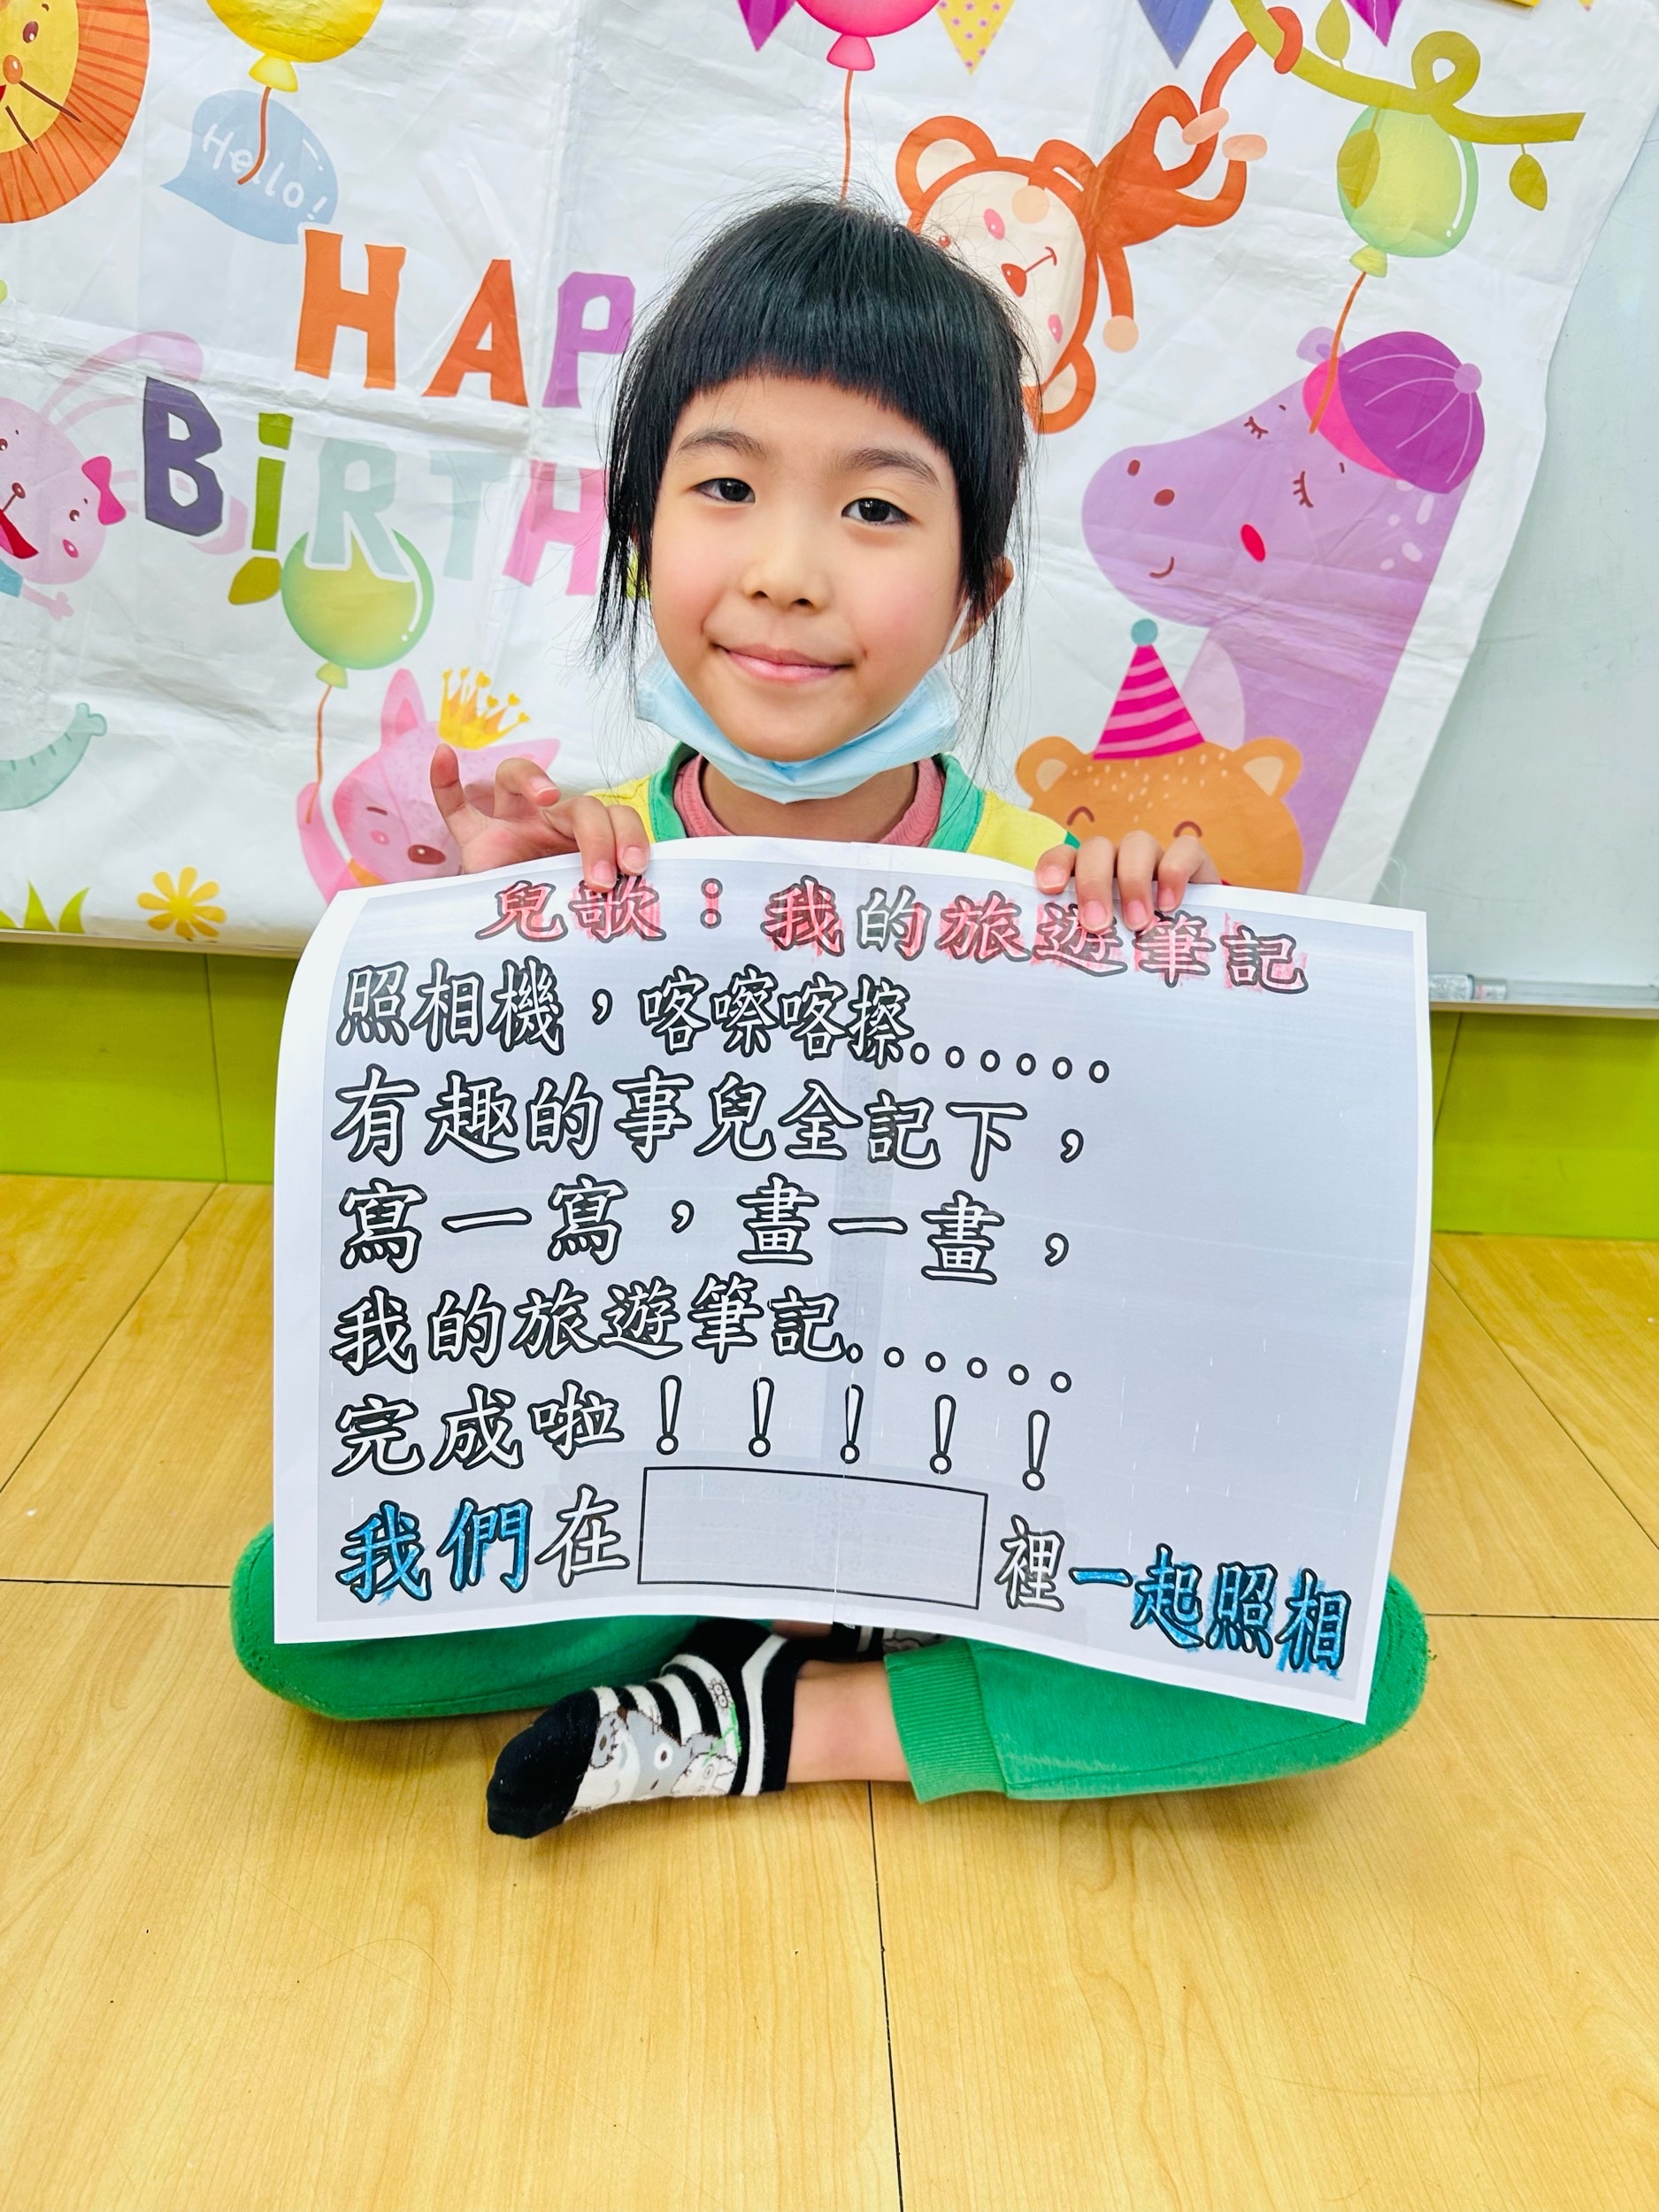 Hello!
HAP
BiRTH
兒歌：我的旅遊筆記
照相機，喀嚓喀擦......
有趣的事兒全記下，
寫一寫，畫一畫，
我的旅遊筆記......
完成啦！！！！！
我們在 裡一起照相